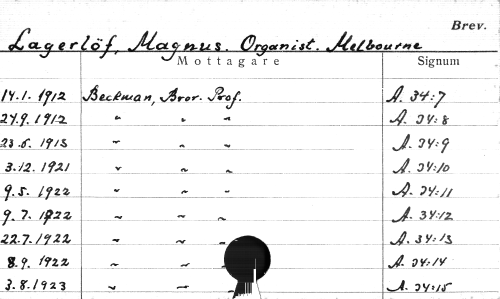 Brev.
Lagerlöf, Magnus. Organist. Melbourne
Mottagare Signum
14.1. 1912 Beckman, Bror. Prof. A. 34:7
27.9. 1912 " " " A. 34:8
23.6. 1915 " " " A. 34:9
3.12. 1921 " " " A. 34:10
9.5. 1922 " " " A. 34:11
9.7. 1922 " " " A. 34:12
22.7. 1922 " " " A. 34:13
8.9. 1922 " " A. 34:14
3.8. 1923 " " A. 34:15